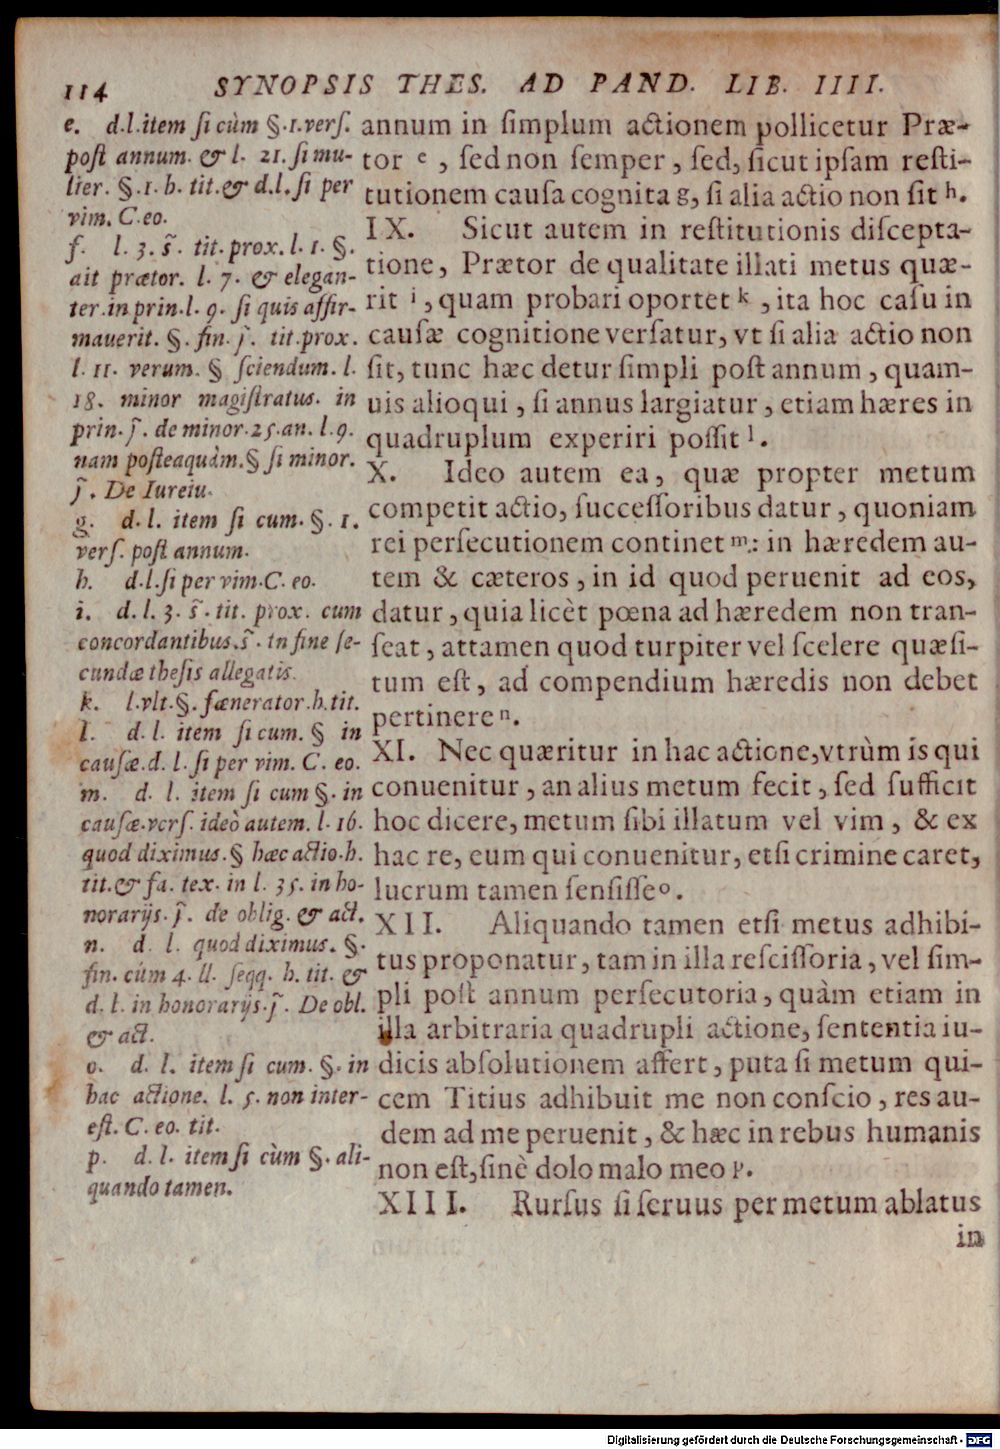 114 SYNOPSIS THES. AD PAND. LIB. IIII.
e. d.l.item ſi cùm §.1.verſ.
poſt annum. & l. 21. ſi mu-
lier. §.1. h. tit.& d.l. ſi per
vim. C.eo.
f. l. 3. s̃. tit. prox. l. 1. §.
ait prætor. l. 7. & elegan-
ter.in prin.l. 9. ſi quis affir-
mauerit. §. fin. j̃. tit.prox.
l. 11. verum. § ſciendum. l.
18. minor magiſtratus. in
prin. j̃. de minor.25.an. l.9.
nam poſteaquàm.§ ſi minor.
j̃. De Iureiu.
g. d. l. item ſi cum. §. 1.
verſ. poſt annum.
h. d.l.ſi per vim.C. eo.
i. d. l. 3. s̃. tit. prox. cum
concordantibus.s̃. in fine ſe-
cundæ theſis allegatis.
k. l.vlt.§. fænerator.h.tit.
l. d. l. item ſi cum. § in
cauſæ.d. l. ſi per vim. C. eo.
m. d. l. item ſi cum §. in
cauſæ.verſ. ideò autem. l. 16.
quod diximus.§ hæc actio.h.
tit.& fa. tex. in l. 35. in ho-
norarijs. j̃. de oblig. & act.
n. d. l. quod diximus. §.
fin. cùm 4. ll. ſeqq. h. tit. &
d. l. in honorarijs. j̃. De obl.
& act.
o. d. l. item ſi cum. §. in
hac actione. l. 5. non inter-
eſt. C. eo. tit.
p. d. l. item ſi cùm §. ali-
quando tamen.
annum in ſimplum actionem pollicetur Præ-
tor e, ſed non ſemper, ſed, ſicut ipſam reſti-
tutionem cauſa cognita g, ſi alia actio non ſit h.
IX. Sicut autem in reſtitutionis diſcepta-
tione, Prætor de qualitate illati metus quæ-
rit i, quam probari oportet k, ita hoc caſu in
cauſæ cognitione verſatur, vt ſi alia actio non
ſit, tunc hæc detur ſimpli poſt annum, quam-
uis alioqui, ſi annus largiatur, etiam hæres in
quadruplum experiri poſſit l.
X. Ideo autem ea, quæ propter metum
competit actio, ſucceſſoribus datur, quoniam
rei perſecutionem continet m.: in hæredem au-
tem & cæteros, in id quod peruenit ad eos,
datur, quia licèt pœna ad hæredem non tran-
ſeat, attamen quod turpiter vel ſcelere quæſi-
tum eſt, ad compendium hæredis non debet
pertinere n.
XI. Nec quæritur in hac actione, vtrùm is qui
conuenitur, an alius metum fecit, ſed ſufficit
hoc dicere, metum ſibi illatum vel vim, & ex
hac re, eum qui conuenitur, etſi crimine caret,
lucrum tamen ſenſiſſe o.
XII. Aliquando tamen etſi metus adhibi-
tus proponatur, tam in illa reſciſſoria, vel ſim-
pli poſt annum perſecutoria, quàm etiam in
illa arbitraria quadrupli actione, ſententia iu-
dicis abſolutionem affert, puta ſi metum qui-
cem Titius adhibuit me non conſcio, res au-
dem ad me peruenit, & hæc in rebus humanis
non eſt, ſinè dolo malo meo p.
XIII. Rurſus ſi ſeruus per metum ablatus
in
Digitalisierung gefördert durch die Deutsche Forschungsgemeinschaft - DFG